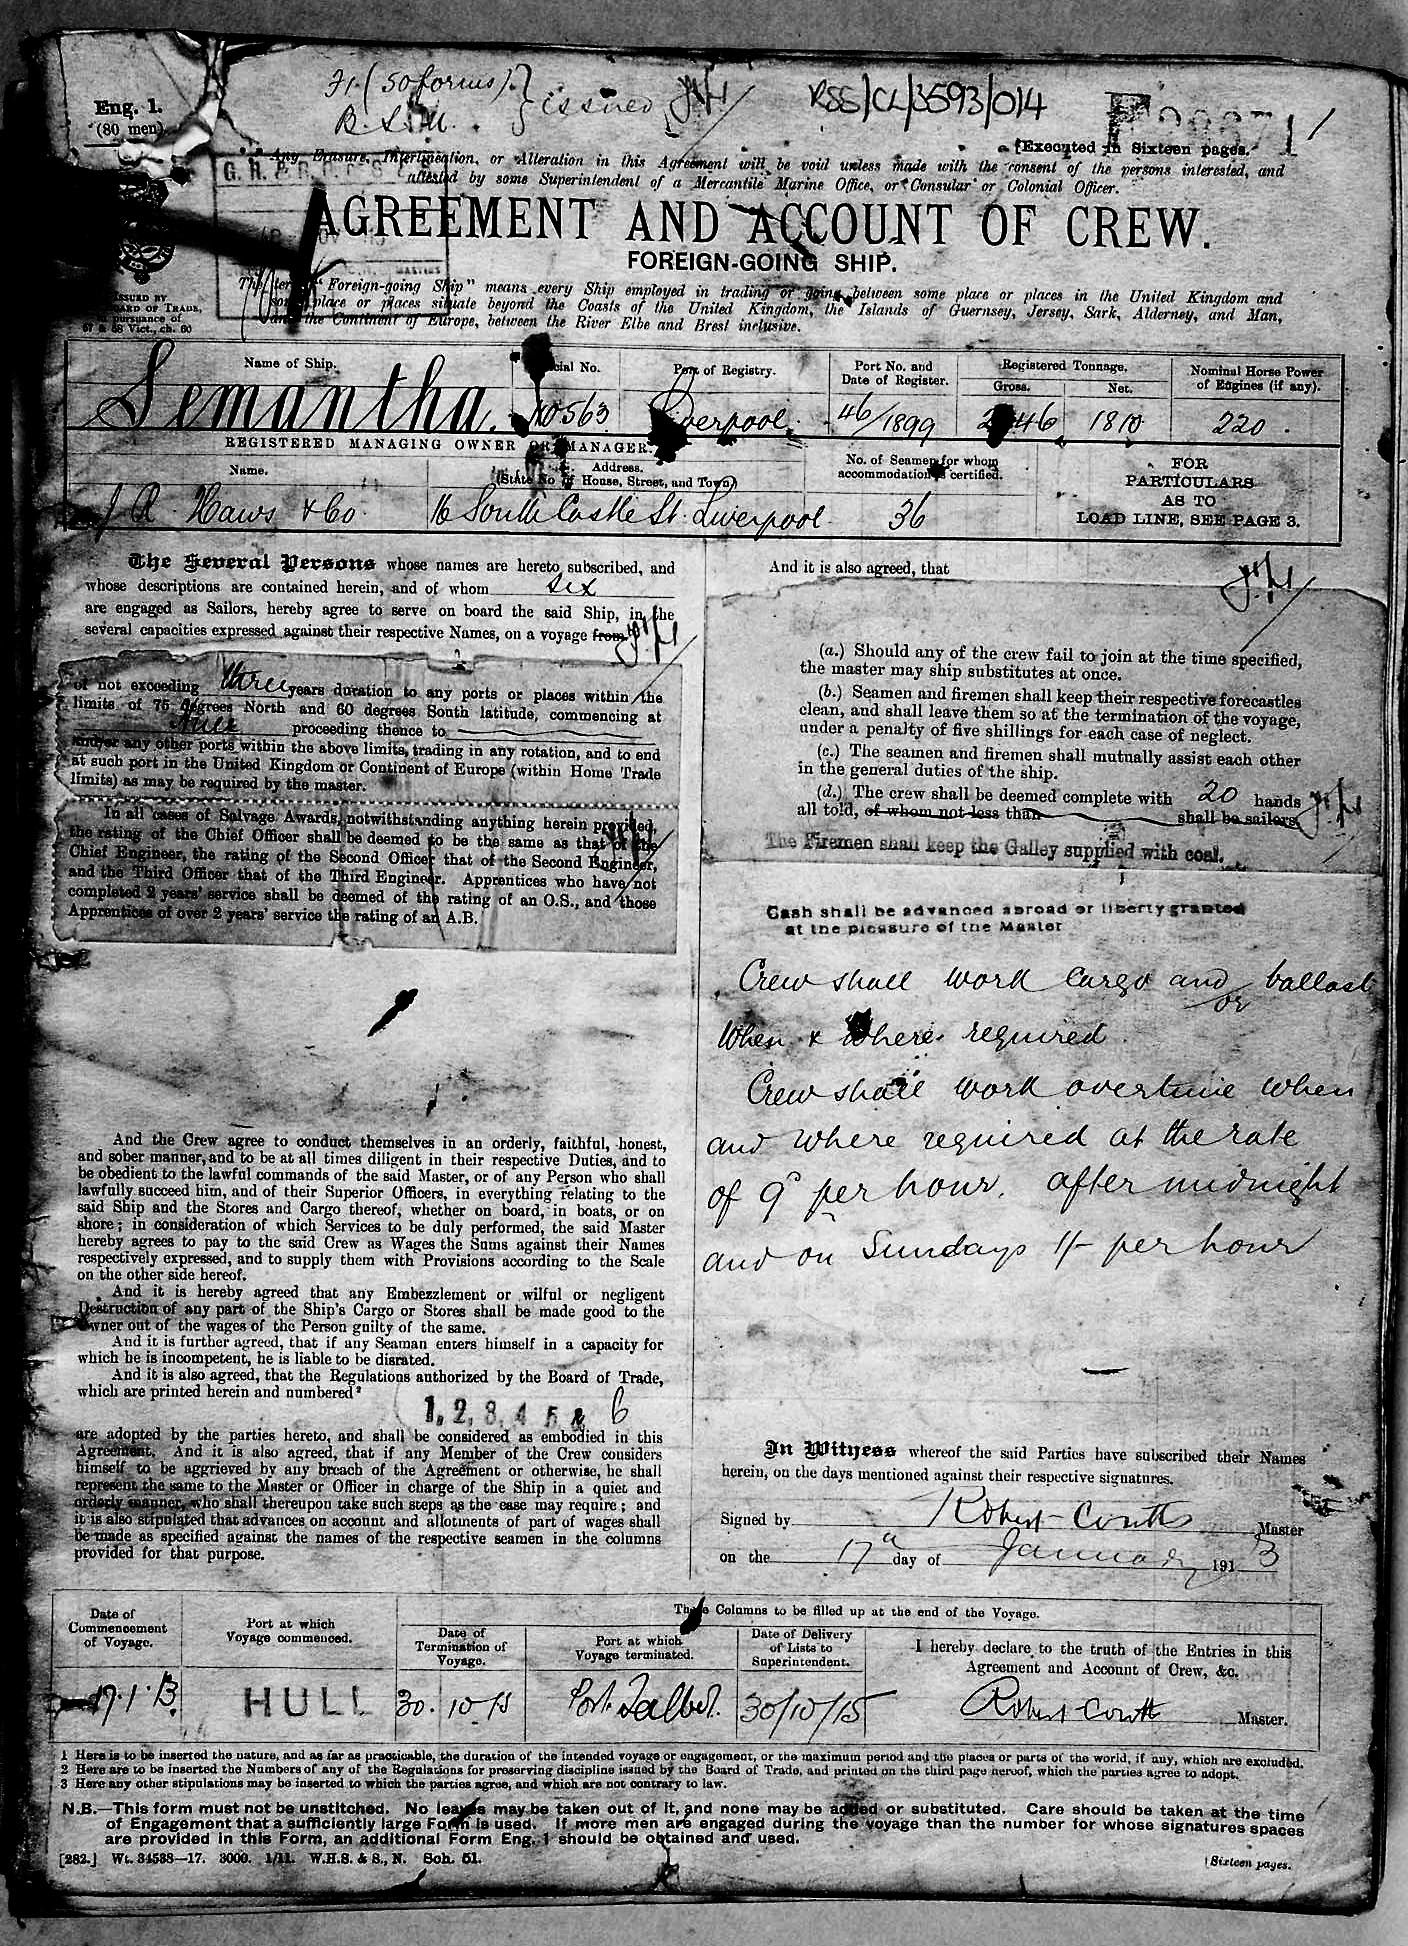 Eng. 1.
(80 men)
(50 forms).} issued
RSS/CL/3593/014
[Executed in Sixteen pages.
Any Erasure, Interlineation, or Alteration in this Agreement will be void unless made with the consent of the persons interested, and
attested by some Superintendent of a Mercantile Marine Office, or Consular or Colonial Officer.
AGREEMENT AND ACCOUNT OF CREW.
FOREIGN-GOING SHIP.
The term "Foreign-going Ship" means every Ship employed in trading or going between some place or places in the United Kingdom and
some place or places situate beyond the Coasts of the United Kingdom, the Islands of Guernsey, Jersey, Sark, Alderney, and Man,
and the Continent of Europe, between the River Elbe and Brest inclusive.
ISSUED BY
BOARD OF TRADE,
pursuance of
57 & 58 Vict., ch. 60
Name of Ship.
Official No.
Port of Registry.
Port No. and
Date of Register.
Registered Tonnage.
Gross.
Net.
Nominal Horse Power
of Engines (if any).
Semantha.
110563
Liverpool.
46/1899
46
1810
220.
REGISTERED MANAGING OWNER OR MANAGER.
Name.
Address.
(State No of House, Street, and Town)
No. of Seamen for whom
accommodation is certified.
FOR
PARTICULARS
AS TO
LOAD LINE, SEE PAGE 3.
J R. Haws & Co.
16 South Castle St. Liverpool.
36
The Several Persons whose names are hereto subscribed, and
whose descriptions are contained herein, and of whom six
are engaged as Sailors, hereby agree to serve on board the said Ship, in the
several capacities expressed against their respective Names, on a voyage from
of not exceeding three years duration to any ports or places within the
limits of 75 degrees North and 60 degrees South latitude, commencing at
Hull proceeding thence to
and/or any other ports within the above limits, trading in any rotation, and to end
at such port in the United Kingdom or Continent of Europe (within Home Trade
limits) as may be required by the master.
In all cases of Salvage Awards, notwithstanding anything herein provided,
the rating of the Chief Officer shall be deemed to be the same as that of the
Chief Engineer, the rating of the Second Officer that of the Second Engineer,
and the Third Officer that of the Third Engineer. Apprentices who have not
completed 2 years' service shall be deemed of the rating of an O.S., and those
Apprentices of over 2 years' service the rating of an A.B.
And the Crew agree to conduct themselves in an orderly, faithful, honest,
and sober manner, and to be at all times diligent in their respective Duties, and to
be obedient to the lawful commands of the said Master, or of any Person who shall
lawfully succeed him, and of their Superior Officers, in everything relating to the
said Ship and the Stores and Cargo thereof, whether on board, in boats, or on
shore; in consideration of which Services to be duly performed, the said Master
hereby agrees to pay to the said Crew as Wages the Sums against their Names
respectively expressed, and to supply them with Provisions according to the Scale
on the other side hereof.
And it is hereby agreed that any Embezzlement or wilful or negligent
Destruction of any part of the Ship's Cargo or Stores shall be made good to the
Owner out of the wages of the Person guilty of the same.
And it is further agreed, that if any Seaman enters himself in a capacity for
which he is incompetent, he is liable to be disrated.
And it is also agreed, that the Regulations authorized by the Board of Trade,
which are printed herein and numbered²
1, 2, 3, 4 5 & 6
are adopted by the parties hereto, and shall be considered as embodied in this
Agreement. And it is also agreed, that if any Member of the Crew considers
himself to be aggrieved by any breach of the Agreement or otherwise, he shall
represent the same to the Master or Officer in charge of the Ship in a quiet and
orderly manner, who shall thereupon take such steps as the case may require; and
it is also stipulated that advances on account and allotments of part of wages shall
be made as specified against the names of the respective seamen in the columns
provided for that purpose.
And it is also agreed, that
(a.) Should any of the crew fail to join at the time specified,
the master may ship substitutes at once.
(b.) Seamen and firemen shall keep their respective forecastles
clean, and shall leave them so at the termination of the voyage,
under a penalty of five shillings for each case of neglect.
(c.) The seamen and firemen shall mutually assist each other
in the general duties of the ship.
(d.) The crew shall be deemed complete with 20 hands
all told, of whom not less than shall be sailors
The Firemen shall keep the Galley supplied with coal.
Cash shall be advanced abroad or liberty granted
at the pleasure of the Master
Crew shall work cargo and/or ballast
When & where required.
Crew shall work overtime when
and where required at the rate
of 9d per hour. after midnight
and on Sundays 1/- per hour
In Witness whereof the said Parties have subscribed their Names
herein, on the days mentioned against their respective signatures.
Signed by Robert Coutts Master
on the 17th day of January 1913
Date of
Commencement
of Voyage.
Port at which
Voyage commenced.
These Columns to be filled up at the end of the Voyage.
Date of
Termination of
Voyage.
Port at which
Voyage terminated.
Date of Delivery
of Lists to
Superintendent.
I hereby declare to the truth of the Entries in this
Agreement and Account of Crew, &c.
17.1.13.
HULL
30.10.15
Port Talbot.
30/10/15
Robert Coutts Master.
1 Here is to be inserted the nature, and as far as practicable, the duration of the intended voyage or engagement, or the maximum period and the places or parts of the world, if any, which are excluded.
2 Here are to be inserted the Numbers of any of the Regulations for preserving discipline issued by the Board of Trade, and printed on the third page hereof, which the parties agree to adopt.
3 Here any other stipulations may be inserted to which the parties agree, and which are not contrary to law.
N.B.—This form must not be unstitched. No leaves may be taken out of it, and none may be added or substituted. Care should be taken at the time
of Engagement that a sufficiently large Form is used. If more men are engaged during the voyage than the number for whose signatures spaces
are provided in this Form, an additional Form Eng. 1 should be obtained and used.
[282.] Wt. 34538—17. 3000. 1/11. W.H.S. & S., N. Sch. 51.
[Sixteen pages.